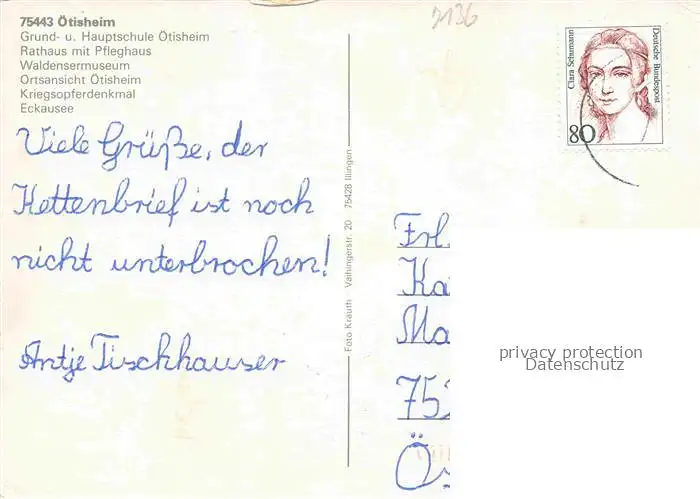 75443 Ötisheim
Grund- u. Hauptschule Ötisheim
Rathaus mit Pfleghaus
Waldensermuseum
Ortsansicht Ötisheim
Kriegsopferdenkmal
Eckausee
Viele Grüße, der
Kettenbrief ist noch
nicht unterbrochen!
Antje Tischhauser
Foto Krauth Vaihingerstr. 20 75428 Illingen
7136
Clara Schumann
Deutsche Bundespost
80
Frl.
Ka
Ma
75
Ö
privacy protection
Datenschutz